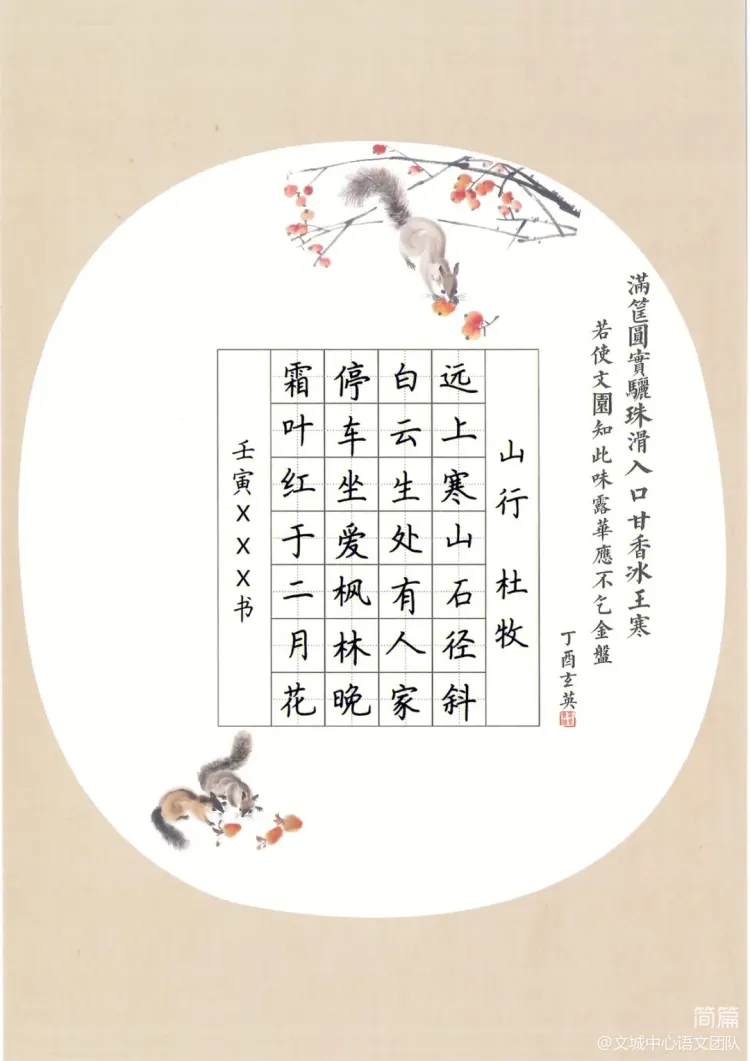 滿筐圓實驪珠滑入口甘香冰玉寒
若使文園知此味露華應不乞金盤
丁酉玄英
山行 杜牧
远上寒山石径斜
白云生处有人家
停车坐爱枫林晚
霜叶红于二月花
壬寅XXX书
简篇
@文城中心语文团队